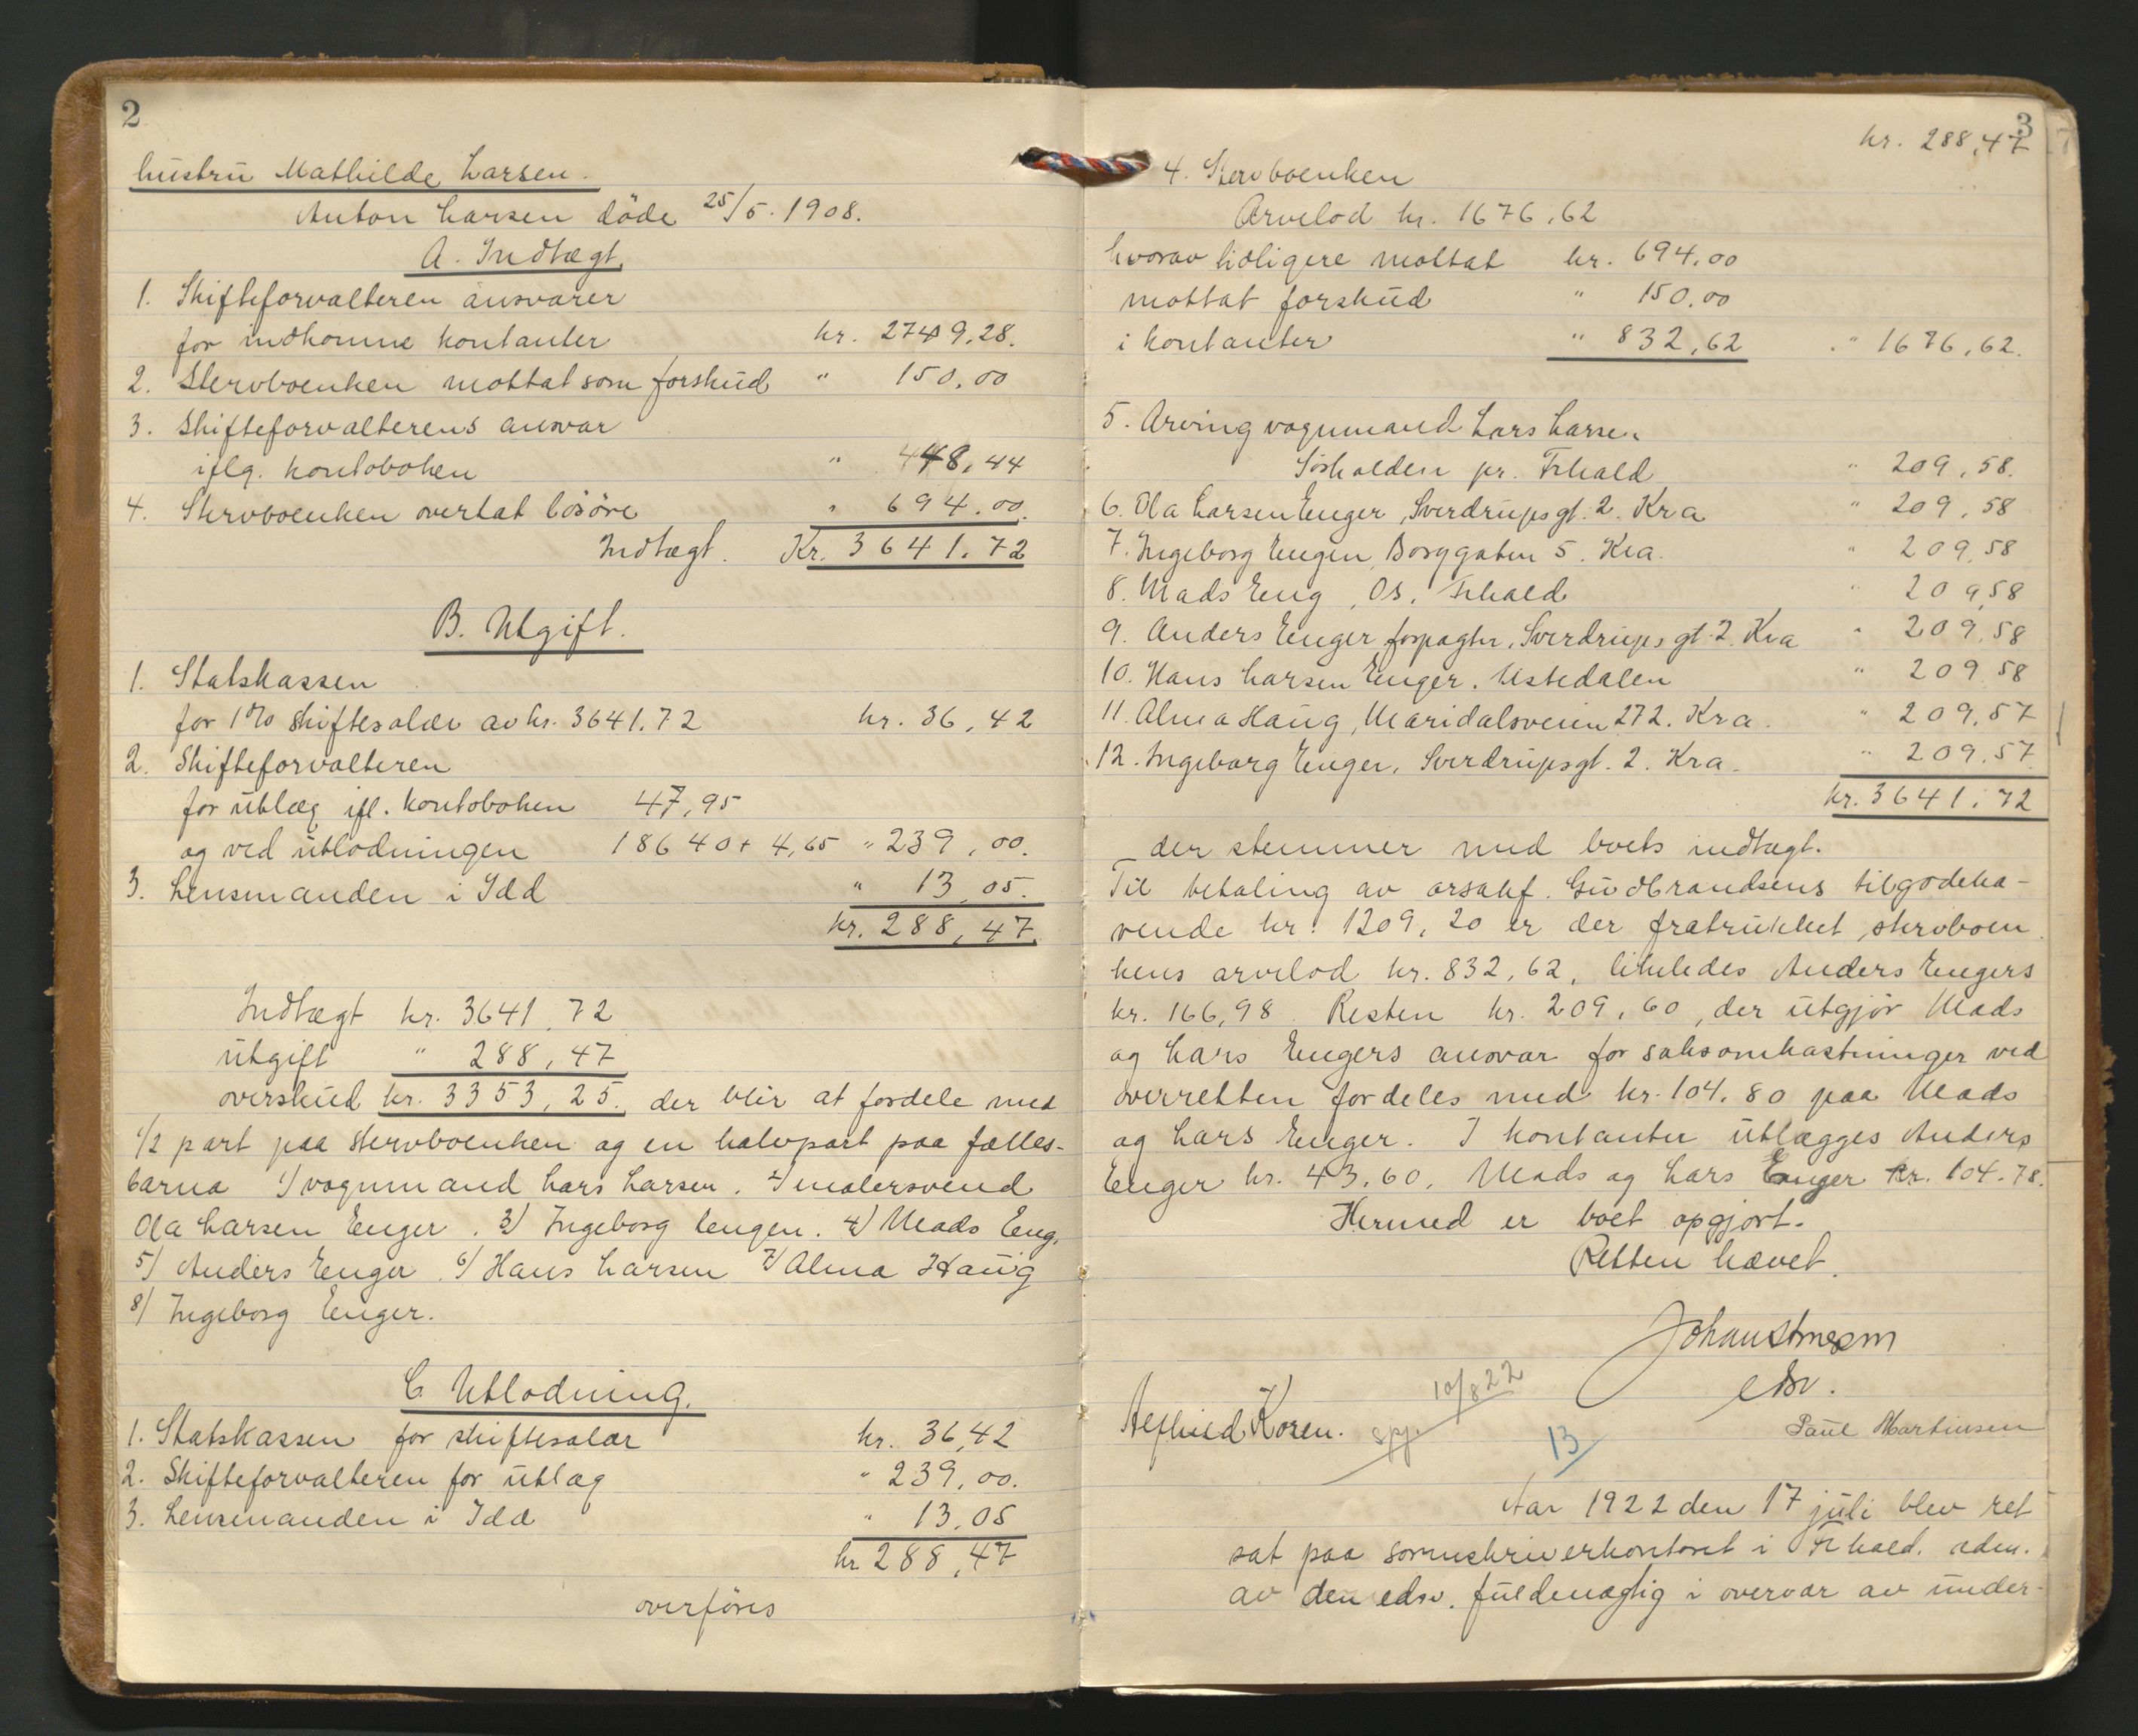 2
hustru Mathilde Larsen.
Anton Larsen döde 25/5. 1908.
A. Indtægt.
1. Skifteforvalteren ansvarer
for indkomne kontanter kr. 2749,28.
2. Stervboenken mottat som forskud " 150.00
3. Skifteforvalterens ansvar
iflg. kontoboken " 48,44
4. Stervboenken overtat lösöre " 694.00.
Indtægt. Kr. 3641.72
B. Utgift.
1. Statskassen
for 1% skiftesalær av kr. 3641.72 kr. 36,42
2. Skifteforvalteren
for utlæg ifl. kontoboken 47,95
og ved utlodningen 186 40 + 4,65 " 239,00.
3. Lensmanden i Idd " 13,05.
kr. 288,47.
Indtægt kr. 3641,72
utgift " 288,47
overskud kr. 3353,25. der blir at fordele med
1/2 part paa stervboenken og en halvpart paa fælles-
barna 1/ vognmand Lars Larsen. 2/ malersvend
Ola Larsen Enger. 3/ Ingeborg Engen. 4/ Mads Eng.
5/ Anders Enger 6/ Hans Larsen 7/ Alma Haug
8/ Ingeborg Enger.
C. Utlodning.
1. Statskassen for skiftesalær kr. 36,42
2. Skifteforvalteren for utlæg " 239,00.
3. Lensmanden i Idd " 13,05
kr 288,47
overföres
3
kr. 288,47
4. Stervboenken
Arvelod kr. 1676,62
hvorav tidligere mottat kr. 694.00
mottat forskud " 150.00
i kontanter " 832,62 " 1676,62.
5. Arving vognmand Lars Larsen
Sörhalden pr. Frhald " 209,58.
6. Ola Larsen Enger, Sverdrupsgt. 2. Kra " 209,58
7. Ingeborg Engen, Borggaten 5. Kra. " 209,58
8. Mads Eng, Os, Frhald " 209,58
9. Anders Enger forpagter, Sverdrups gt. 2. Kra " 209,58
10. Hans Larsen Enger. Ustedalen " 209 58
11. Alma Haug, Maridalsveien 272. Kra. " 209,57
12. Ingeborg Enger, Sverdrupsgt. 2. Kra. " 209,57
kr. 3641,72
der stemmer med boets indtægt.
Til betaling av orsakf. Gudbrandsens tilgodeha-
vende kr. 1209,20 er der fratrukket stervboen
kens arvelod kr. 832,62, likeledes Anders Engers
kr. 166,98 Resten kr. 209,60, der utgjör Mads
og Lars Engers ansvar for saksomkostninger ved
overretten fordeles med kr. 104,80 paa Mads
og Lars Enger. I kontanter utlægges Anders
Enger kr. 43.60, Mads og Lars Enger kr. 104.78.
Hermed er boet opgjort.
Retten hævet.
edsv.
Paul Martinsen
Koren.
10/8 22
13
Aar 1922 den 17 juli blev ret
sat paa sorenskriverkontoret i Frhald. adm.
av den edsv. fuldmægtig i overvær av under-